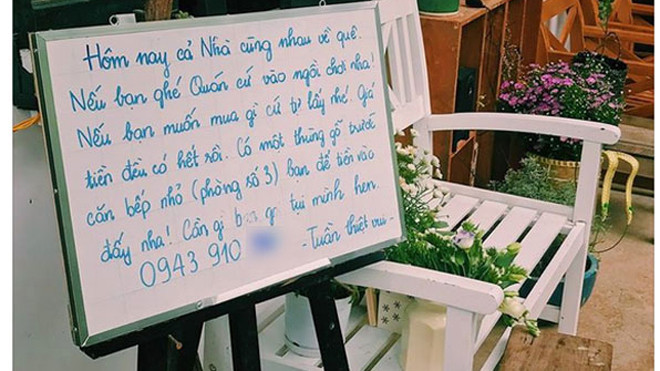 Hôm nay cả Nhà cùng nhau về quê.
Nếu bạn ghé Quán cứ vào ngồi chơi nha!
Nếu bạn muốn mua gì cứ tự lấy nhé. Giá
tiền đều có hết rồi. Có một thùng gỗ trước
căn bếp nhỏ (phòng số 3) bạn để tiền vào
đấy nha! Cần gì bạn gọi tụi mình hen.
0943 910 - Tuấn thiệt vui -